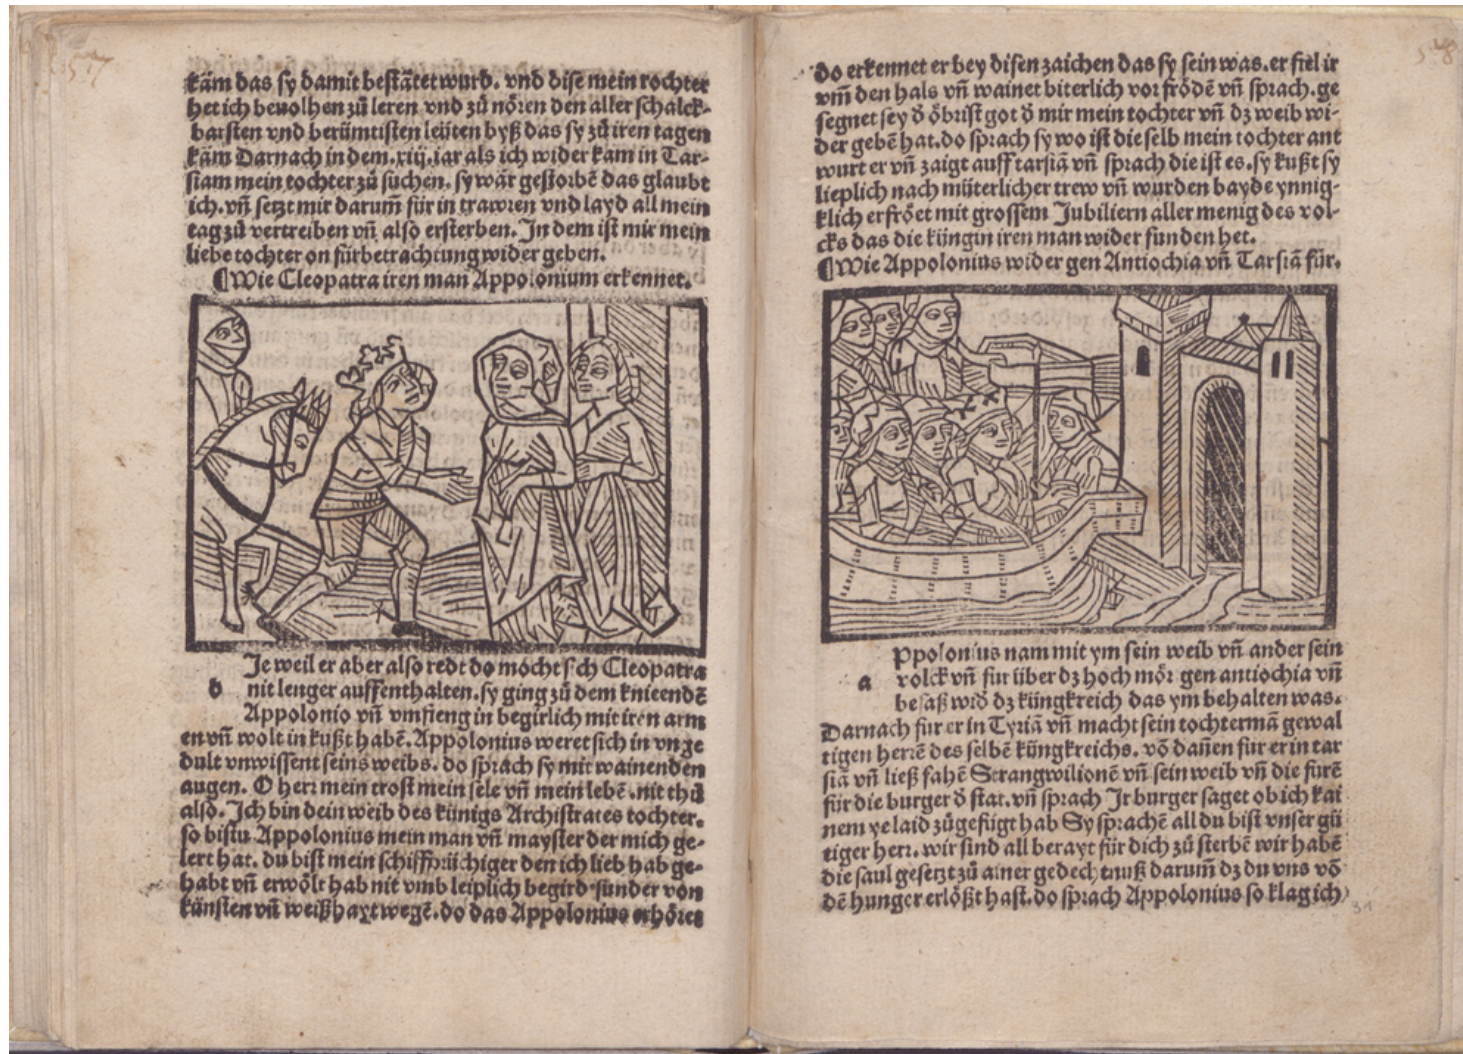 577
käm das sy damit bestätet wurd. vnd dise mein tochter
het ich beuolhen zů leren vnd zů nören den aller schalck-
barsten vnd berümtisten leüten byß das sy zů iren tagen
käm Darnach in dem .xiij. iar als ich wider kam in Tar-
siam mein tochter zů suchen. sy wär gestorbē das glaubt
ich. vn̄ setzt mir darum̄ für in trawren vnd layd all mein
tag zů vertreiben vn̄ also ersterben. In dem ist mir mein
liebe tochter on fürbetrachtung wider geben.
¶Wie Cleopatra iren man Appolonium erkennet.
Je weil er aber also redt do mocht sich Cleopatra
d nit lenger auffenthalten. sy ging zů dem knieendē
Appolonio vn̄ vmfieng in begirlich mit iren arm
en vn̄ wolt in kußt habē. Appolonius weret sich in vnge
dult vnwissent seins weibs. do sprach sy mit wainenden
augen. O herr mein trost mein sele vn̄ mein lebē. nit thů
also. Ich bin dein weib des künigs Archistrates tochter.
so bistu Appolonius mein man vn̄ mayster der mich ge-
lert hat. du bist mein schiffprüchiger den ich lieb hab ge-
habt vn̄ erwölt hab nit vmb leiplich begird sunder von
künsten vn̄ weißhayt wegē. do das Appolonius erhöret
578
do erkennet er bey disen zaichen das sy sein was. er fiel ir
vm̄ den hals vn̄ wainet biterlich vor frödē vn̄ sprach. ge
segnet sey d̄ öbrist got d̄ mir mein tochter vn̄ dz weib wi-
der gebē hat. do sprach sy wo ist die selb mein tochter ant
wurt er vn̄ zaigt auff tarsiā vn̄ sprach die ist es. sy kußt sy
lieplich nach müterlicher trew vn̄ wurden bayde ynnig-
klich erfröet mit grossem Jubiliern aller menig des vol-
cks das die küngin iren man wider funden het.
¶Wie Appolonius wider gen Antiochia vn̄ Tarsiā für.
Ppolonius nam mit ym sein weib vn̄ ander sein
a volck vn̄ fur über dz hoch mör gen antiochia vn̄
besaß wid̄ dz küngkreich das ym behalten was.
Darnach fur er in Tyriā vn̄ macht sein tochtermā gewal
tigen herrē des selbē küngkreichs. vō dan̄en fur er in tar
siā vn̄ ließ fahē Strangwilionē vn̄ sein weib vn̄ die fürē
für die burger d̄ stat. vn̄ sprach Ir burger saget ob ich kai
nem ye laid zůgefügt hab Sy sprachē all du bist vnser gü
tiger herr. wir sind all berayt für dich zů sterbē wir habē
die saul gesetzt zů ainer gedechtnuß darum̄ dz du vns vō
dē hunger erlößt hast. do sprach Appolonius so klag ich